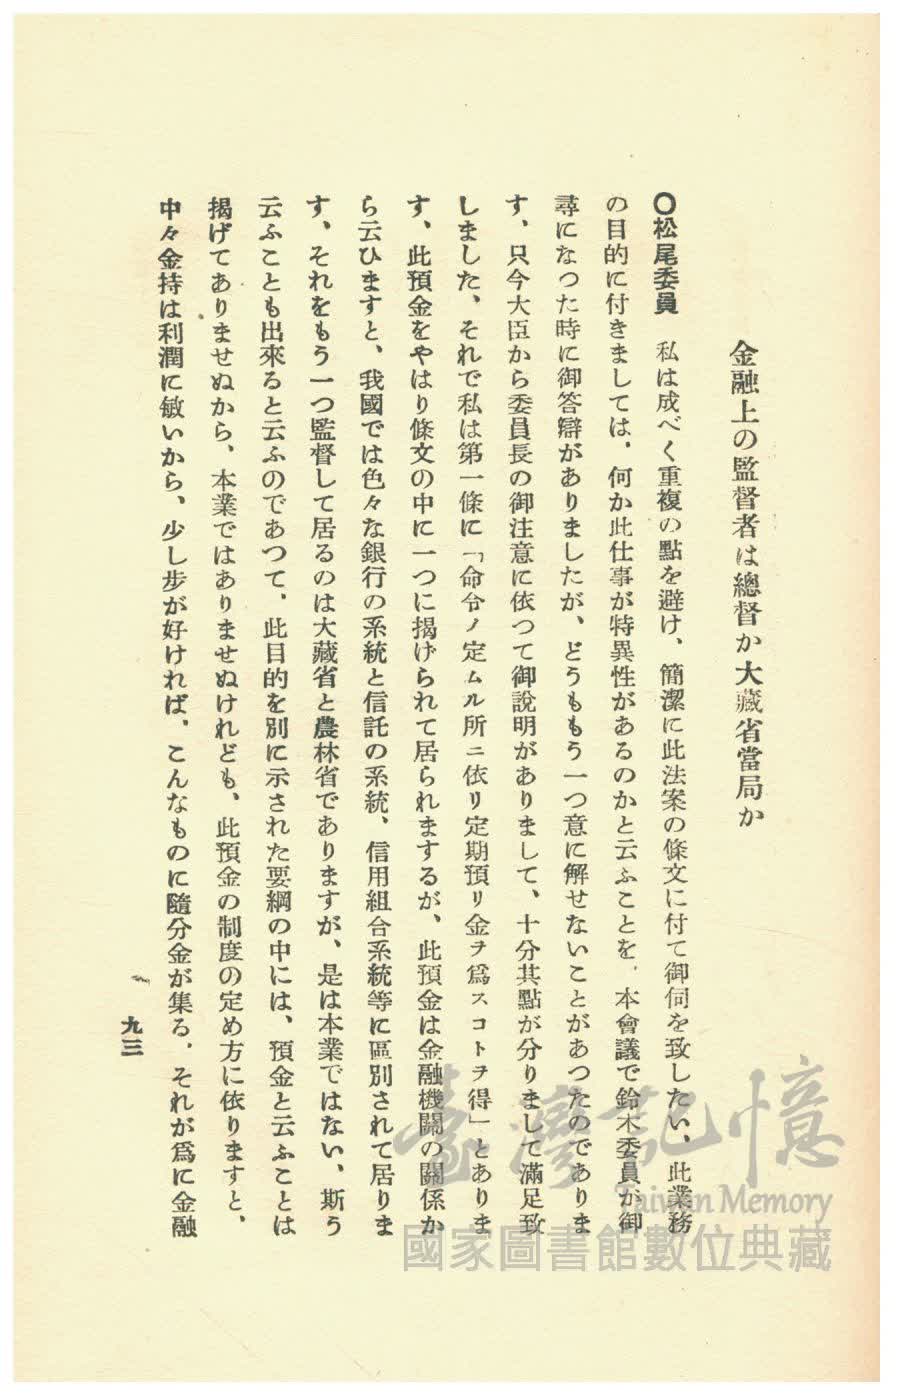 金融上の監督者は總督か大藏省當局か
〇松尾委員　私は成べく重複の點を避け、簡潔に此法案の條文に付て御伺を致したい、此業務
の目的に付きましては、何か此仕事が特異性があるのかと云ふことを、本會議で鈴木委員が御
尋になつた時に御答辯がありましたが、どうももう一つ意に解せないことがあつたのでありま
す、只今大臣から委員長の御注意に依つて御說明がありまして、十分其點が分りまして滿足致
しました、それで私は第一條に「命令ノ定ムル所ニ依リ定期預リ金ヲ爲スコトヲ得」とありま
す、此預金をやはり條文の中に一つに揭げられて居られまするが、此預金は金融機關の關係か
ら云ひますと、我國では色々な銀行の系統と信託の系統、信用組合系統等に區別されて居りま
す、それをもう一つ監督して居るのは大藏省と農林省でありますが、是は本業ではない、斯う
云ふことも出來ると云ふのであつて、此目的を別に示された要綱の中には、預金と云ふことは
揭げてありませぬから、本業ではありませぬけれども、此預金の制度の定め方に依りますと、
中々金持は利潤に敏いから、少し步が好ければ、こんなものに隨分金が集る、それが爲に金融
九三
臺灣記憶
Taiwan Memory
國家圖書館數位典藏